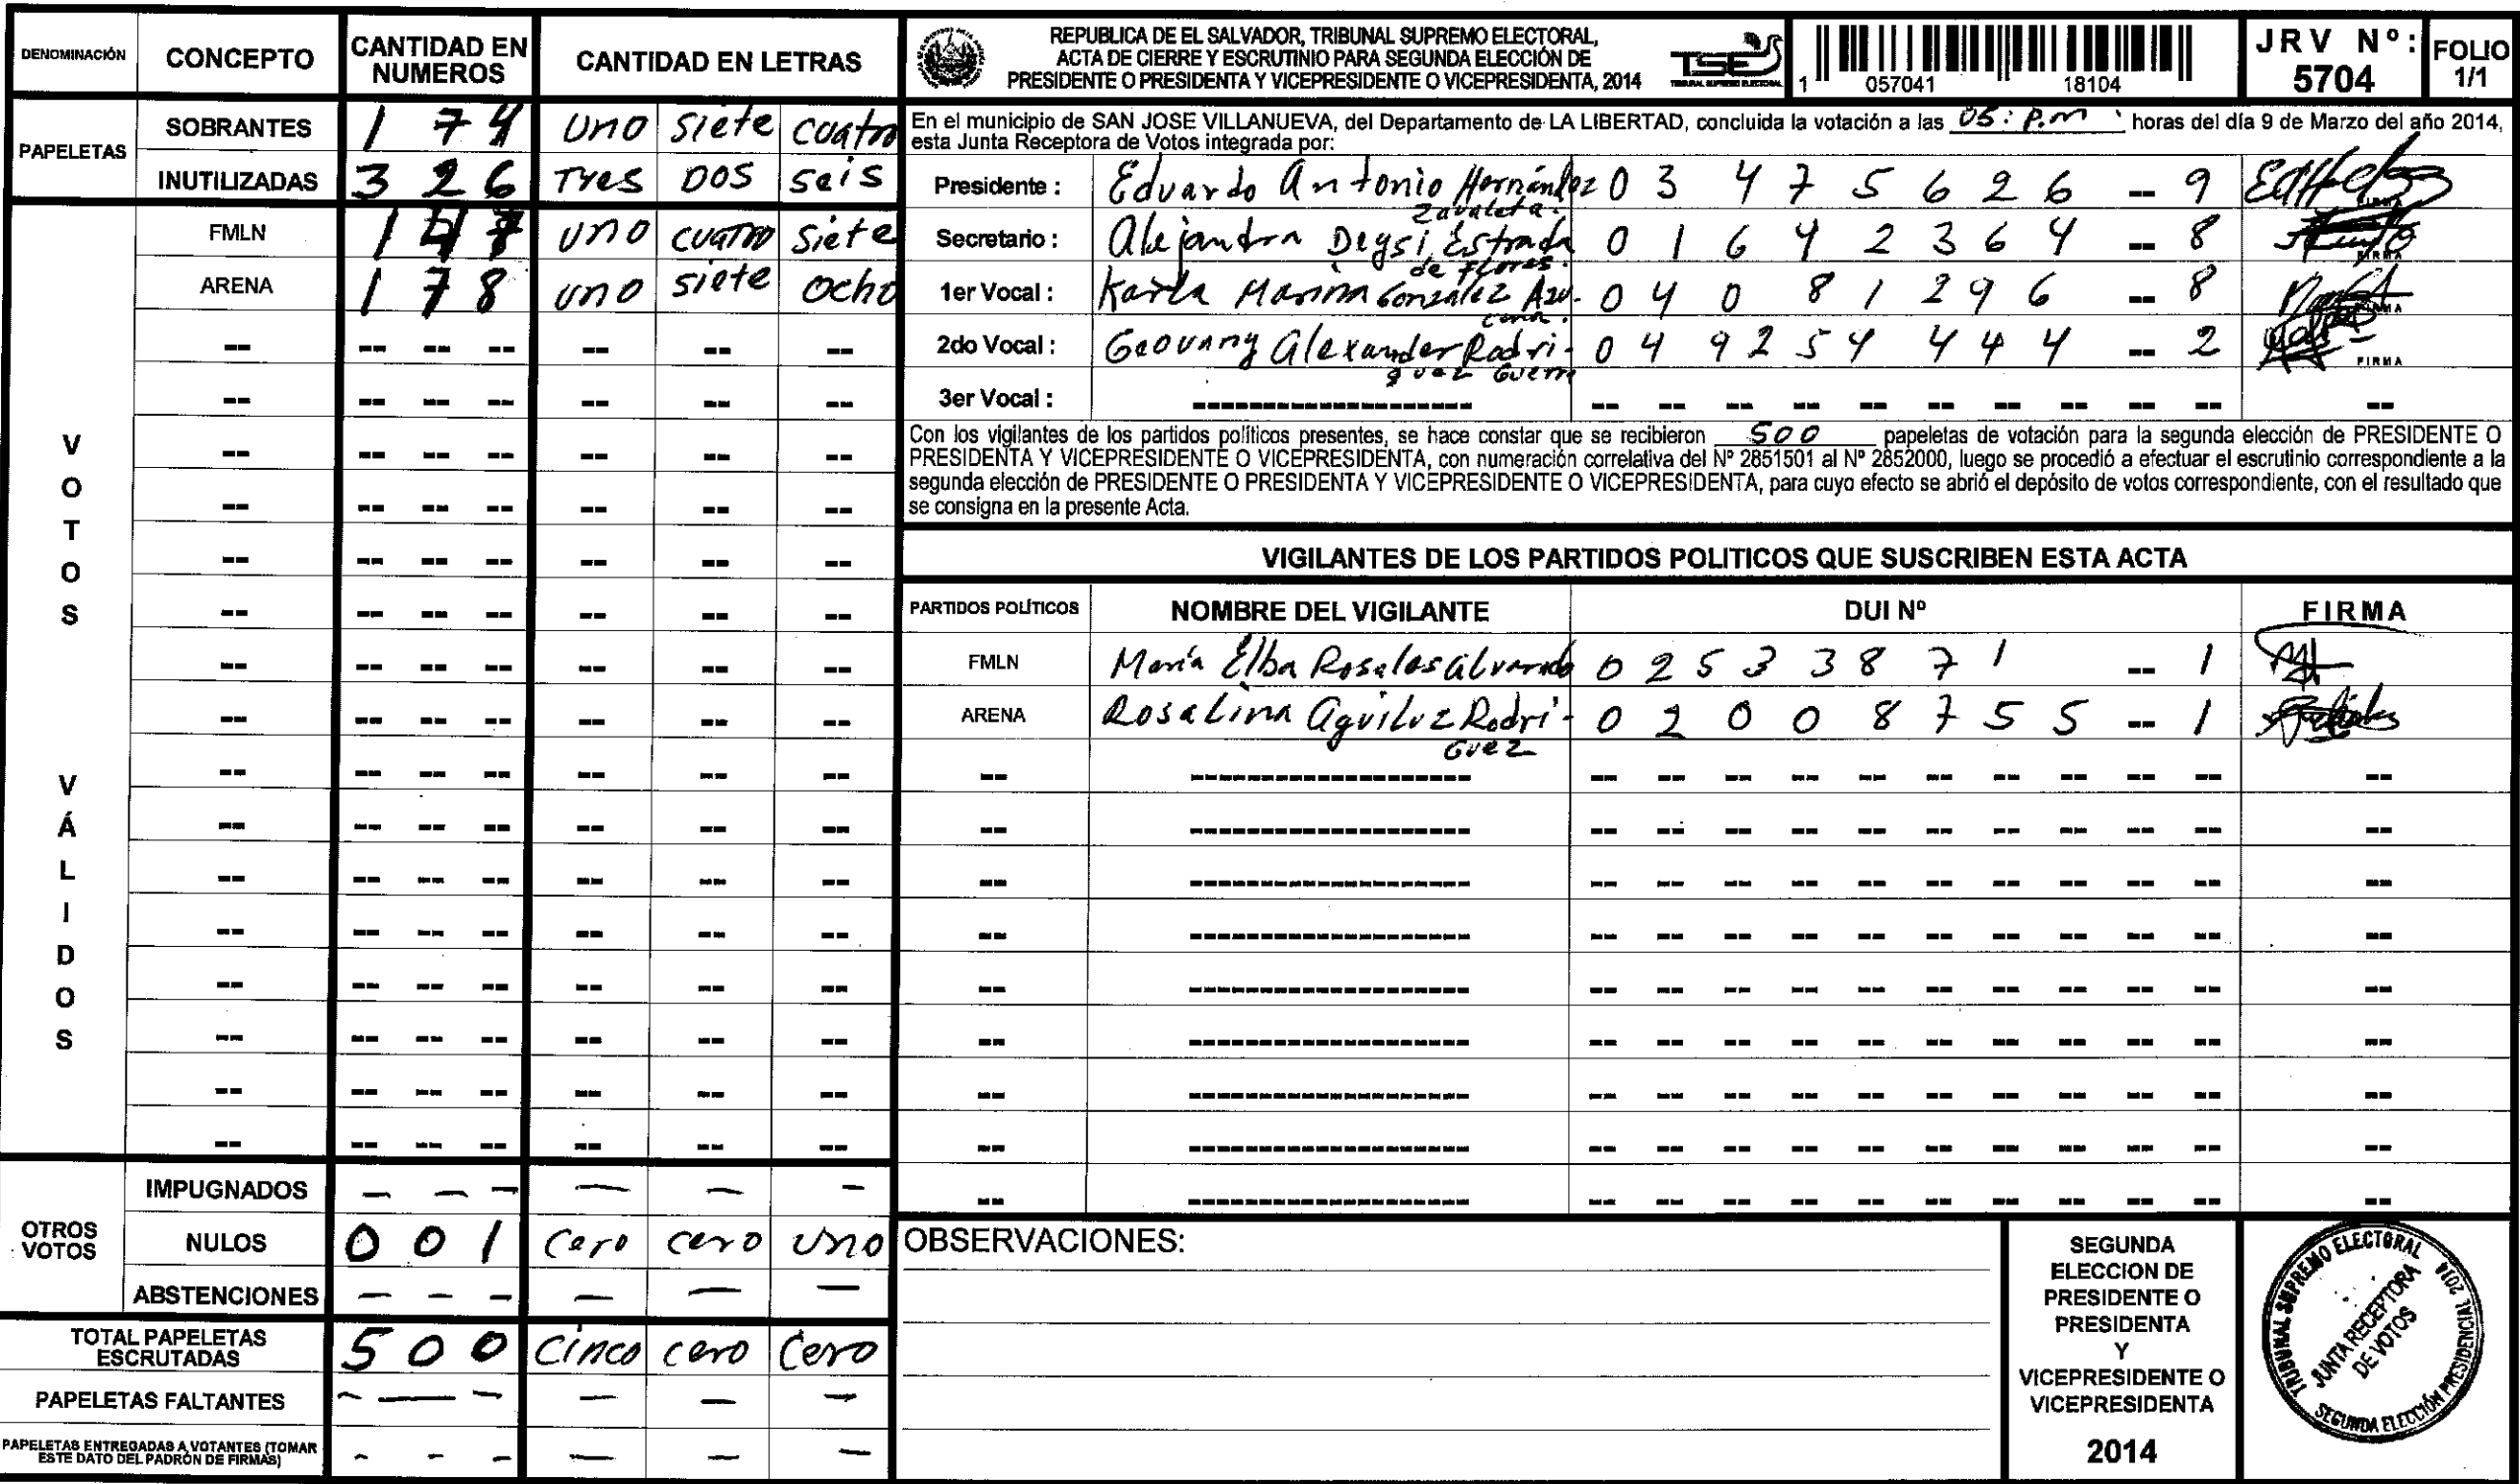 DENOMINACIÓN CONCEPTO CANTIDAD EN NUMEROS CANTIDAD EN LETRAS
PAPELETAS
SOBRANTES 1 7 4 uno siete cuatro
INUTILIZADAS 3 2 6 Tres DOS seis
VOTOS VÁLIDOS
FMLN 1 4 7 uno cuatro siete
ARENA 1 7 8 uno siete ocho
OTROS VOTOS
IMPUGNADOS — — — — — —
NULOS 0 0 1 cero cero uno
ABSTENCIONES — — — — — —
TOTAL PAPELETAS ESCRUTADAS 5 0 0 cinco cero cero
PAPELETAS FALTANTES — — — — — —
PAPELETAS ENTREGADAS A VOTANTES (TOMAR ESTE DATO DEL PADRÓN DE FIRMAS) - - - — — —
REPUBLICA DE EL SALVADOR, TRIBUNAL SUPREMO ELECTORAL,
ACTA DE CIERRE Y ESCRUTINIO PARA SEGUNDA ELECCIÓN DE
PRESIDENTE O PRESIDENTA Y VICEPRESIDENTE O VICEPRESIDENTA, 2014
TSE
TRIBUNAL SUPREMO ELECTORAL
1 057041 18104
JRV Nº: 5704
FOLIO 1/1
En el municipio de SAN JOSE VILLANUEVA, del Departamento de LA LIBERTAD, concluida la votación a las 05: P.m horas del día 9 de Marzo del año 2014,
esta Junta Receptora de Votos integrada por:
Presidente : Eduardo Antonio Hernández Zavaleta. 0 3 4 7 5 6 2 6 -- 9 FIRMA
Secretario : Alejandra Deysi Estrada de Flores. 0 1 6 4 2 3 6 4 -- 8 FIRMA
1er Vocal : Karla Marina González Azu- cena. 0 4 0 8 1 2 9 6 -- 8 FIRMA
2do Vocal : Geovany Alexander Rodri- guez Guerra 0 4 9 2 5 4 4 4 4 -- 2 FIRMA
3er Vocal : ------------------ -- -- -- -- -- -- -- -- -- -- --
Con los vigilantes de los partidos políticos presentes, se hace constar que se recibieron 500 papeletas de votación para la segunda elección de PRESIDENTE O
PRESIDENTA Y VICEPRESIDENTE O VICEPRESIDENTA, con numeración correlativa del Nº 2851501 al Nº 2852000, luego se procedió a efectuar el escrutinio correspondiente a la
segunda elección de PRESIDENTE O PRESIDENTA Y VICEPRESIDENTE O VICEPRESIDENTA, para cuyo efecto se abrió el depósito de votos correspondiente, con el resultado que
se consigna en la presente Acta.
VIGILANTES DE LOS PARTIDOS POLITICOS QUE SUSCRIBEN ESTA ACTA
PARTIDOS POLÍTICOS NOMBRE DEL VIGILANTE DUI Nº FIRMA
FMLN María Elba Rosales Alvarado 0 2 5 3 3 8 7 1 -- 1
ARENA Rosalina Aguiluz Rodri- Guez 0 2 0 0 8 7 5 5 -- 1
OBSERVACIONES:
SEGUNDA
ELECCION DE
PRESIDENTE O
PRESIDENTA
Y
VICEPRESIDENTE O
VICEPRESIDENTA
2014
TRIBUNAL SUPREMO ELECTORAL
JUNTA RECEPTORA
DE VOTOS
SEGUNDA ELECCIÓN PRESIDENCIAL 2014